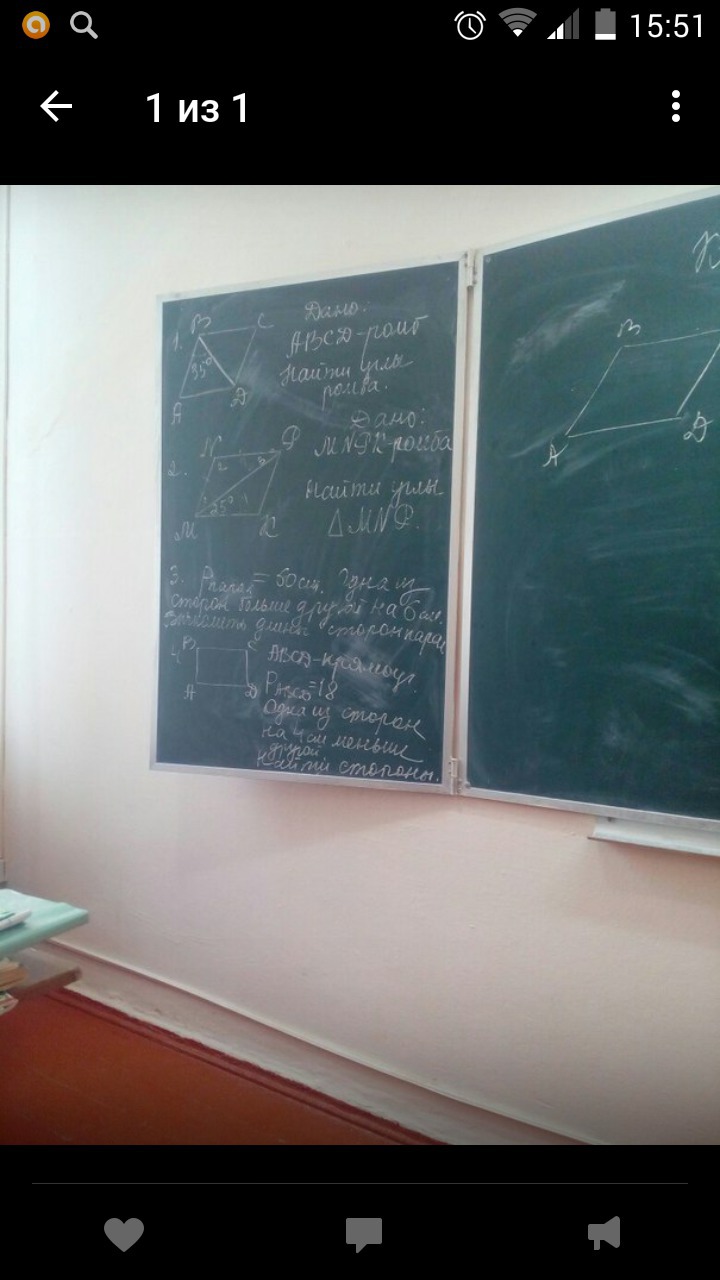 15:51
1 из 1
1.
B
C
35°
A
D
Дано:
ABCD-ромб
Найти углы
ромба.
2.
N
P
M
25°
K
Дано:
MNPK-ромба
Найти углы
△MNP.
3. Pпарал = 60см. Одна из
сторон больше другой на 6 см.
длины сторон парал
4.
B
C
A
D
ABCD-прямоуг.
PABCD=18
Одна из сторон
на 4 см меньше
другой
Найти стороны.
B
A
D